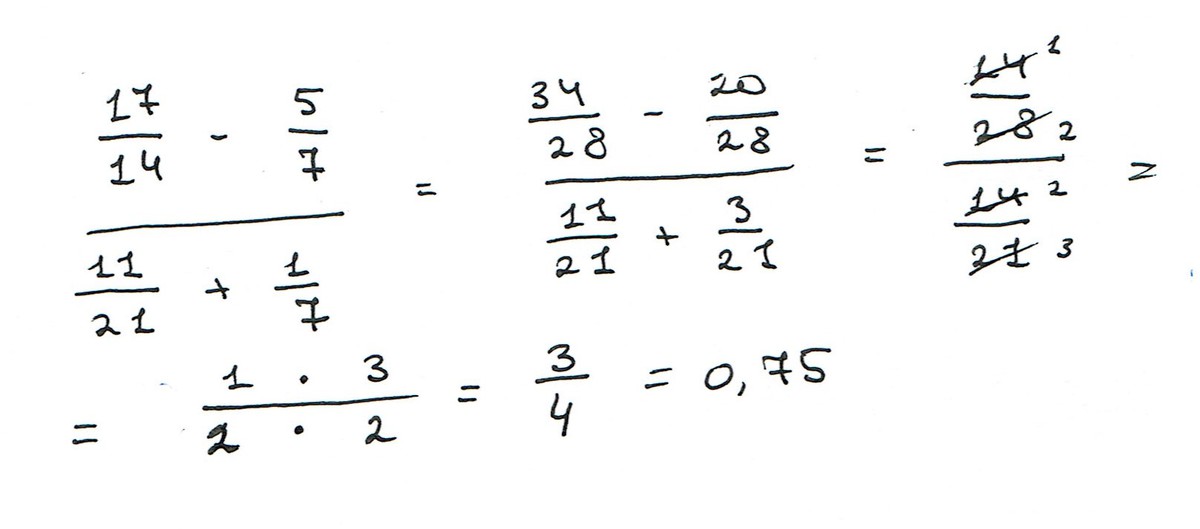 17/14 - 5/7 / 11/21 + 1/7 = 34/28 - 20/28 / 11/21 + 3/21 = 14 1/28 2 / 14 2/21 3 =
= 1 · 3 / 2 · 2 = 3/4 = 0,75